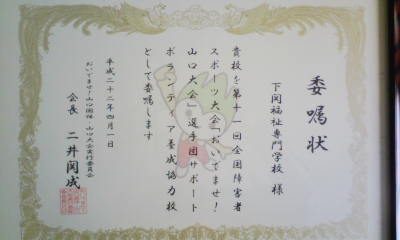 委嘱状
下関福祉専門学校 様
貴校を第十一回全国障害者
スポーツ大会「おいでませ!
山口大会」選手団サポート
ボランティア養成協力校
として委嘱します
平成二十二年四月一日
おいでませ!山口国体・山口大会実行委員会
会長 二井関成